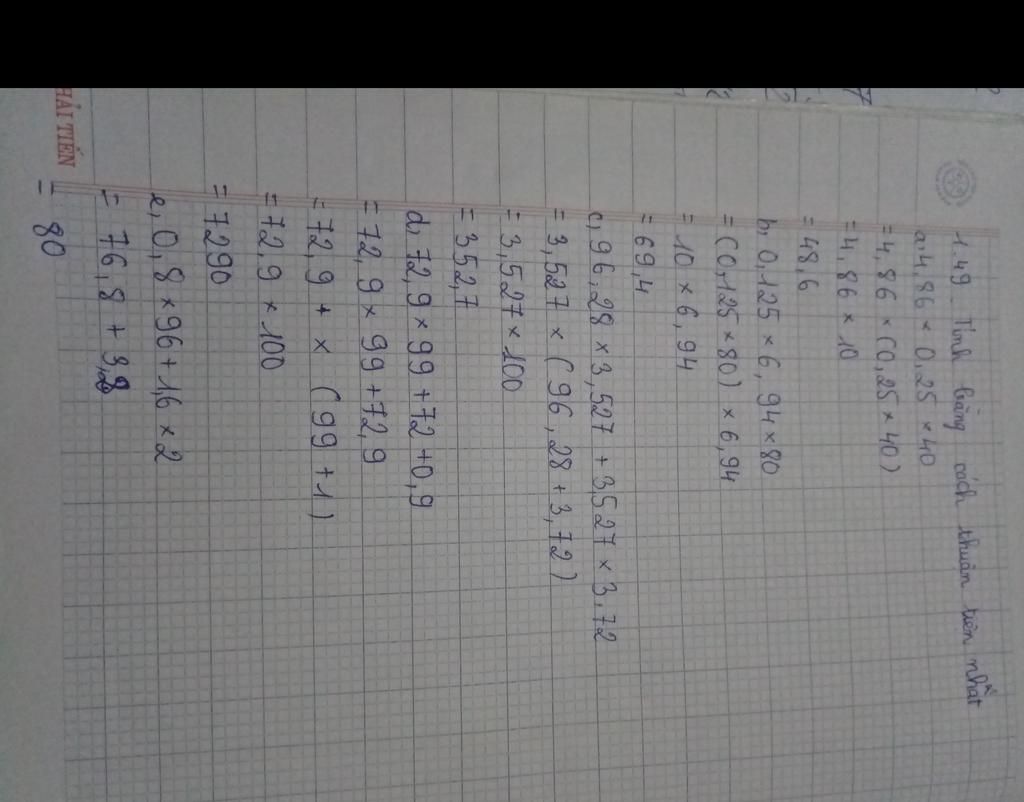 1.49 Tính bằng cách thuận tiện nhất
a, 4,86 × 0,25 × 40
= 4,86 × (0,25 × 40)
= 4,86 × 10
= 48,6
b, 0,125 × 6,94 × 80
= (0,125 × 80) × 6,94
= 10 × 6,94
= 69,4
c, 96,28 × 3,527 + 3,527 × 3,72
= 3,527 × (96,28 + 3,72)
= 3,527 × 100
= 352,7
d, 72,9 × 99 + 72 + 0,9
= 72,9 × 99 + 72,9
= 72,9 + × (99 + 1)
= 72,9 × 100
= 7290
e, 0,8 × 96 + 1,6 × 2
= 76,8 + 3,2
= 80
HẢI TIẾN